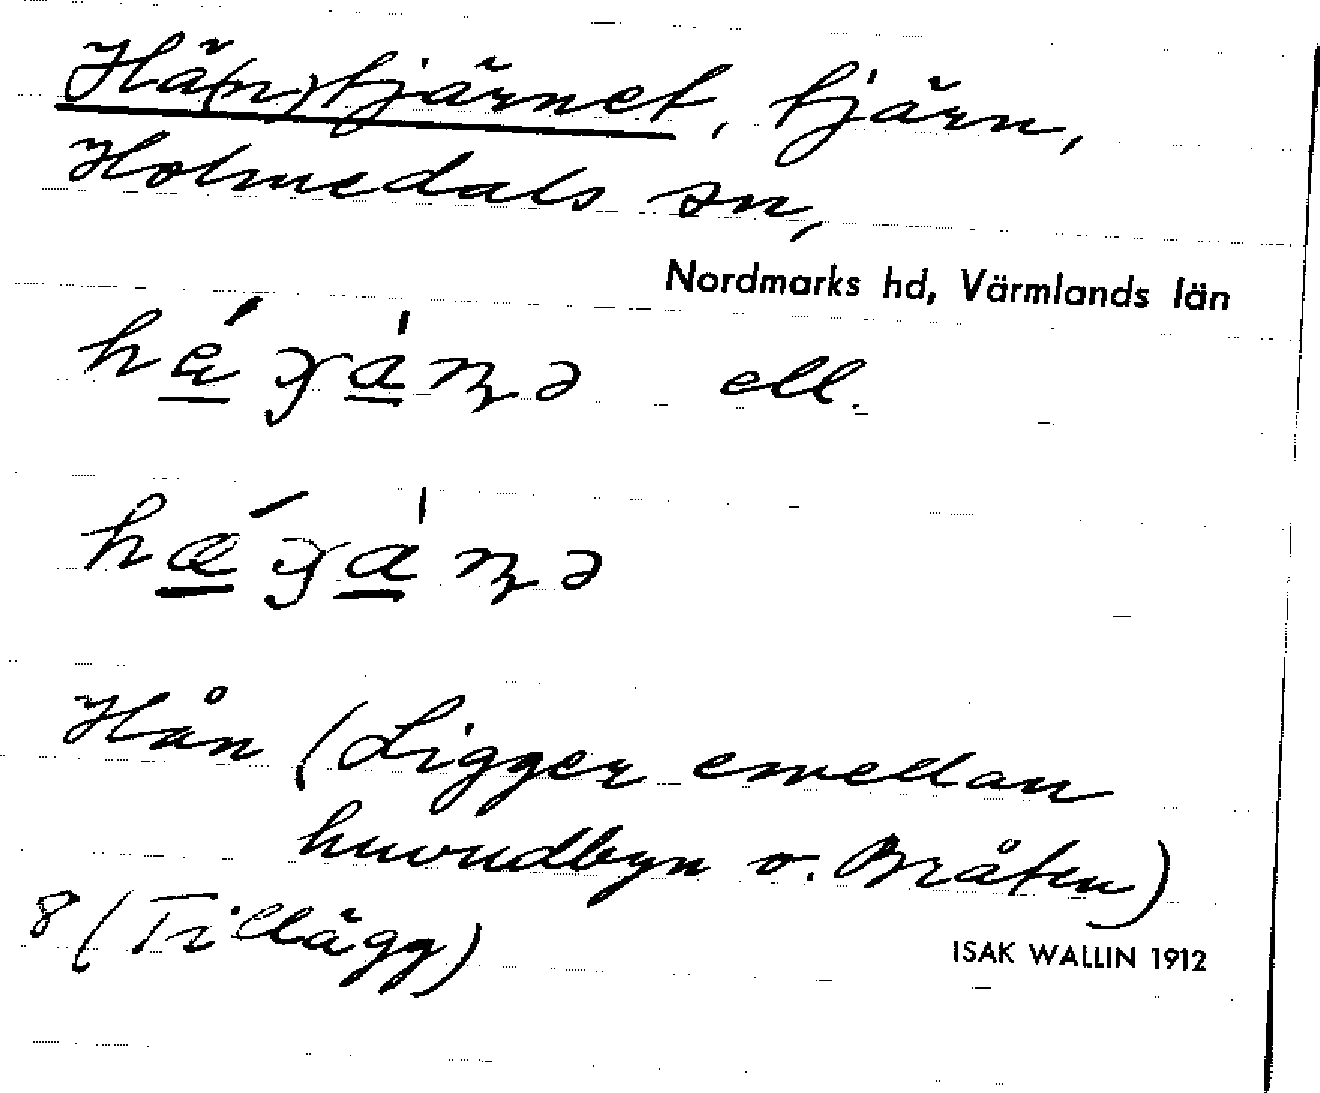 Hä(n)tjärnet, tjärn,
Holmedals sn,
Nordmarks hd, Värmlands län
ell.
Hån (Ligger emellan
huvudbyn o. Bråten)
8 (Tillägg)
ISAK WALLIN 1912